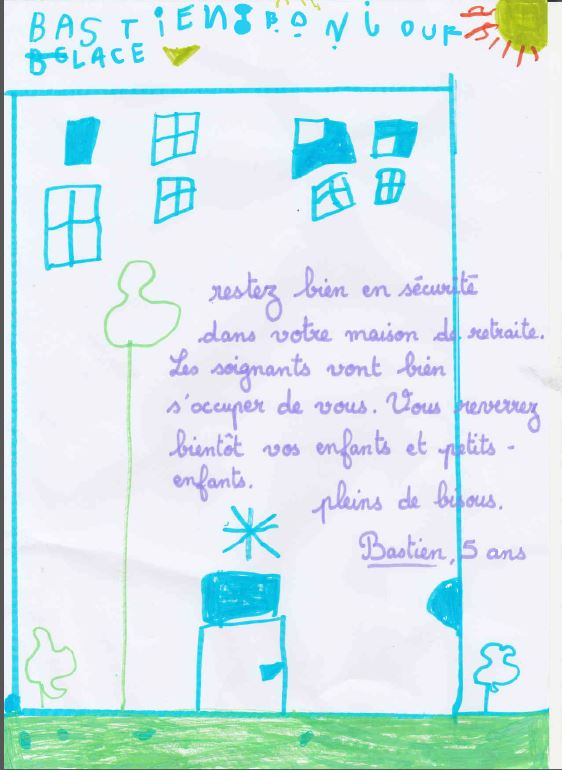 BASTIEN BONIOUR
LACE
restez bien en sécurité
dans votre maison de retraite.
Les soignants vont bien
s'occuper de vous. Vous reverrez
bientôt vos enfants et petits -
enfants.
pleins de bisous.
Bastien, 5 ans